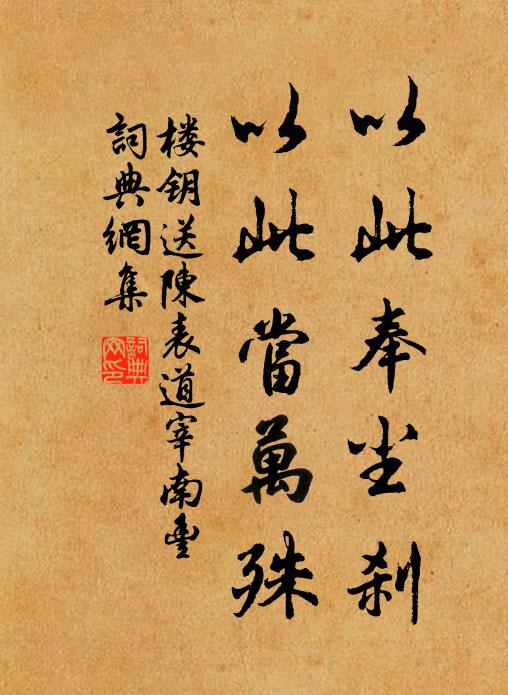 以此奉尘刹
以此當萬殊
楼钥送陳表道宰南豐
詞典網集
詞典网印